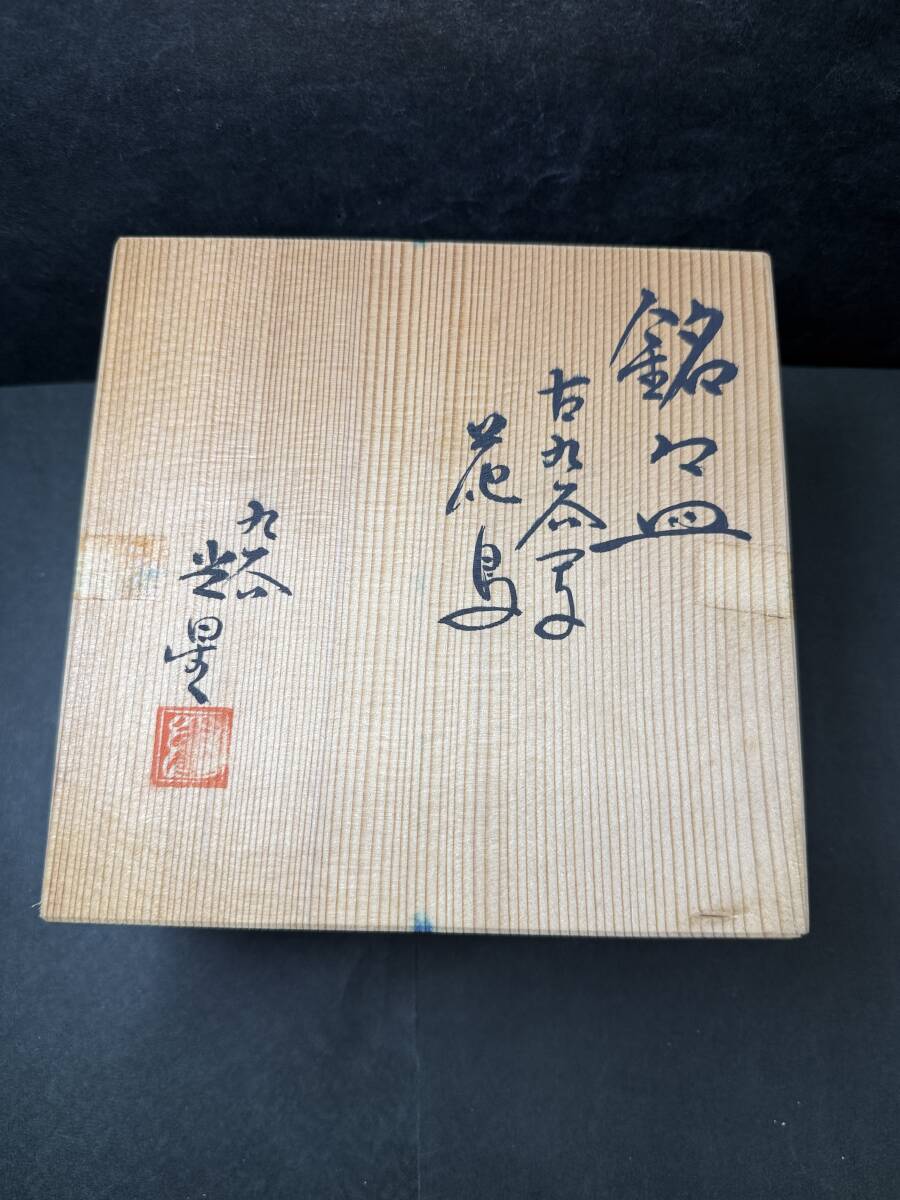 銘々皿
古九谷写
花鳥
九谷
光星